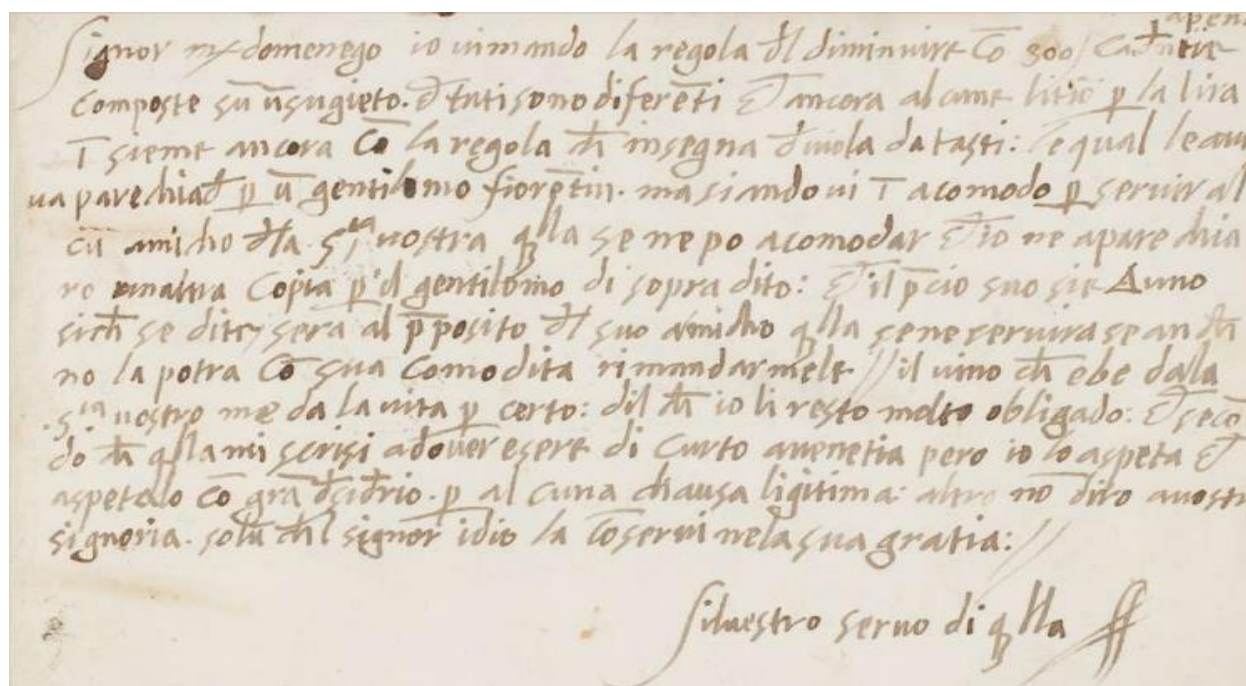 apena
Signor mr domenego io ui mando la regola dl diminuire cō 300 Cadentie
composte su ū sugieto. & tuti sono diferēti & ancora alcune p la lira
Īsieme ancora cō la regola ch insegna d uiola da tasti: le qual le aue
ua parechiad p ū gentilomo fiorētin. ma siando ui ī acomodo p seruir al
cū amicho dla S.ria uostra qlla se ne po acomodar & io ne aparechia
ro unaltra copia p il gentilomo di sopra dito: & il pcio suo sie Δ uno
sich se dite sera al pposito dl suo amicho qlla se ne seruira se an ch
no la potra cō sua comodita rimandarmele // il uino ch ebe dalla
.S.ria uostro me da la uita p certo: dil ch io li resto molto obligado: & secō
do ch qlla mi scrisi a douer esere di curto a uenetia pero io lo aspeta &
aspetelo cō grā dsidrio. p alcuna chausa ligitima: altro nō diro a uostr
signoria. solū chl signor idio la cōserui ne la sua gratia: //
siluestro seruo di qlla